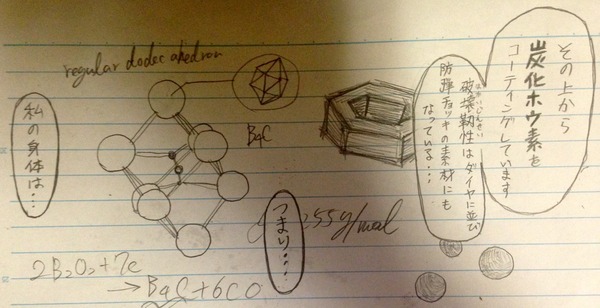 その上から
炭化ホウ素を
コーティングしています
はかいじんせい
破壊靭性はダイヤに並び
防弾チョッキの素材にも
なっている・・・
regular dodecahedron
B4C
つまり・・・・
55g/mol
私の身体は・・・
2B2O3+7C
→B4C+6CO